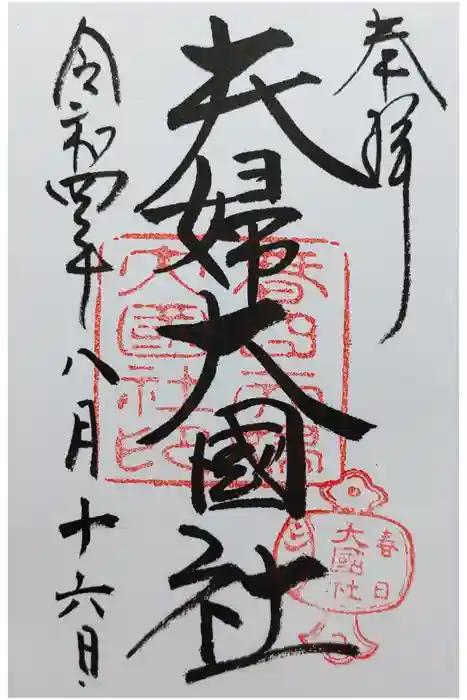 奉拝
夫婦大國社
令和四年八月十六日
大國社印
春日
大國社